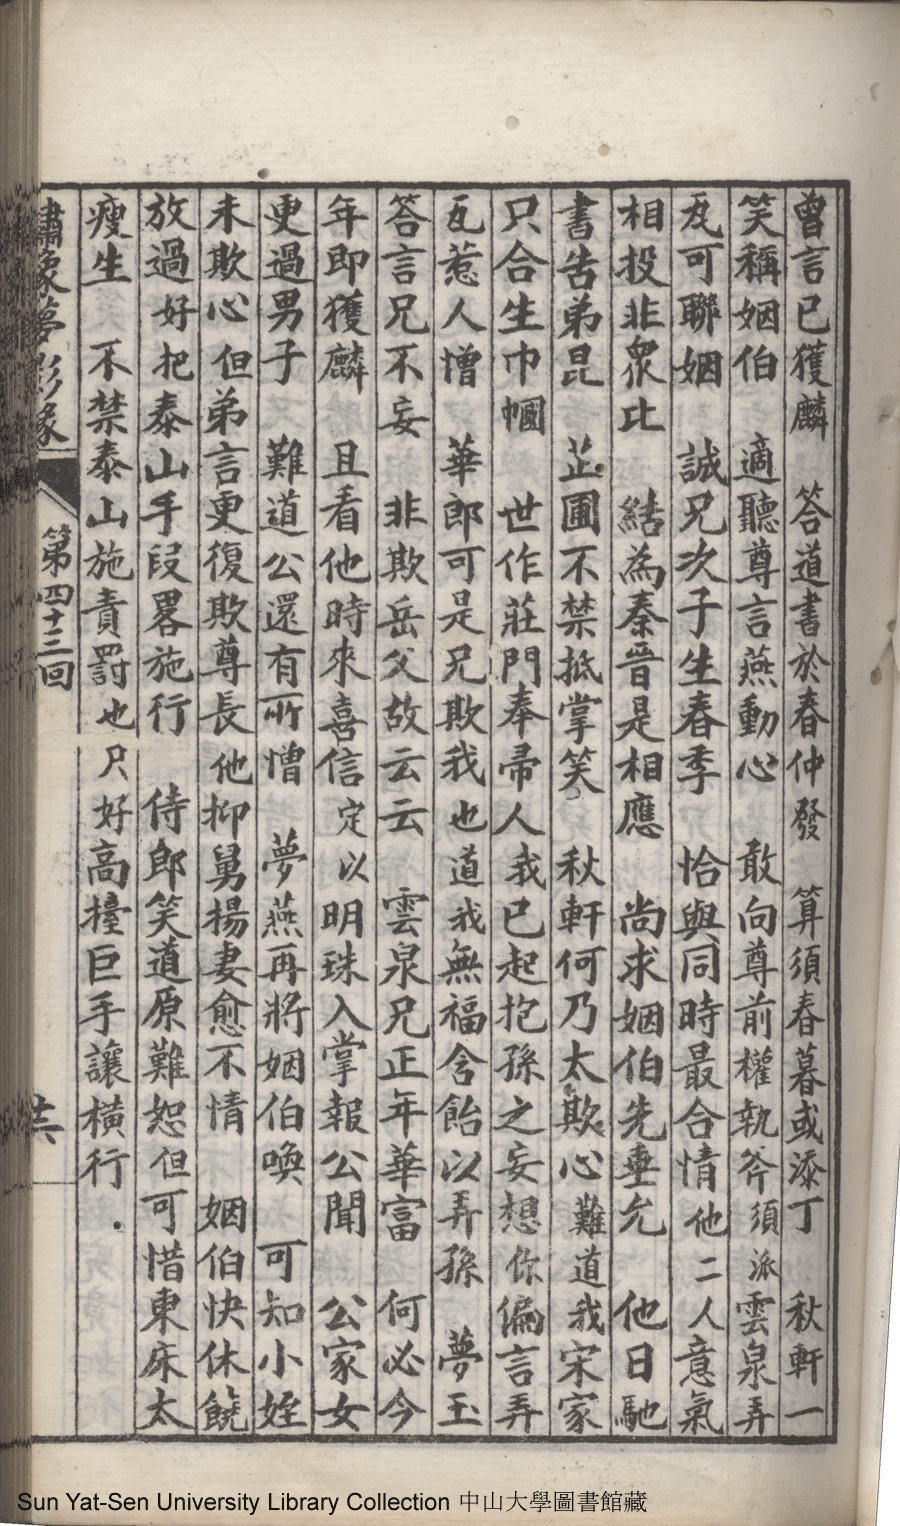 曾言已獲麟　答道書於春仲發　算須春暮或添丁　秋軒一
笑稱姻伯　適聽尊言燕動心　敢向尊前權執斧須派雲泉弄
瓦可聯姻　誠兄次子生春季　恰與同時最合情他二人意氣
相投非衆比　結為秦晉是相應　尚求姻伯先垂允　他日馳
書告弟昆　芷圃不禁抵掌笑　秋軒何乃太欺心難道我宋家
只合生巾幗　世作莊門奉帚人我已起抱孫之妄想你偏言弄
瓦惹人憎　華郎可是兄欺我也道我無福含飴以弄孫　夢玉
答言兄不妄　非欺岳父故云云　雲泉兄正年華富　何必今
年即獲麟　且看他時來喜信定以明珠入掌報公聞　公家女
更過男子　難道公還有所憎　夢燕再將姻伯喚　可知小姪
未欺心但弟言更復欺尊長他抑舅揚妻愈不情　姻伯快休饒
放過好把泰山手段畧施行　侍郎笑道原難恕但可惜東床太
瘦生　不禁泰山施責罰也只好高擡巨手讓橫行．
繡像夢影緣　第四十三回　廿六
Sun Yat-Sen University Library Collection 中山大學圖書館藏